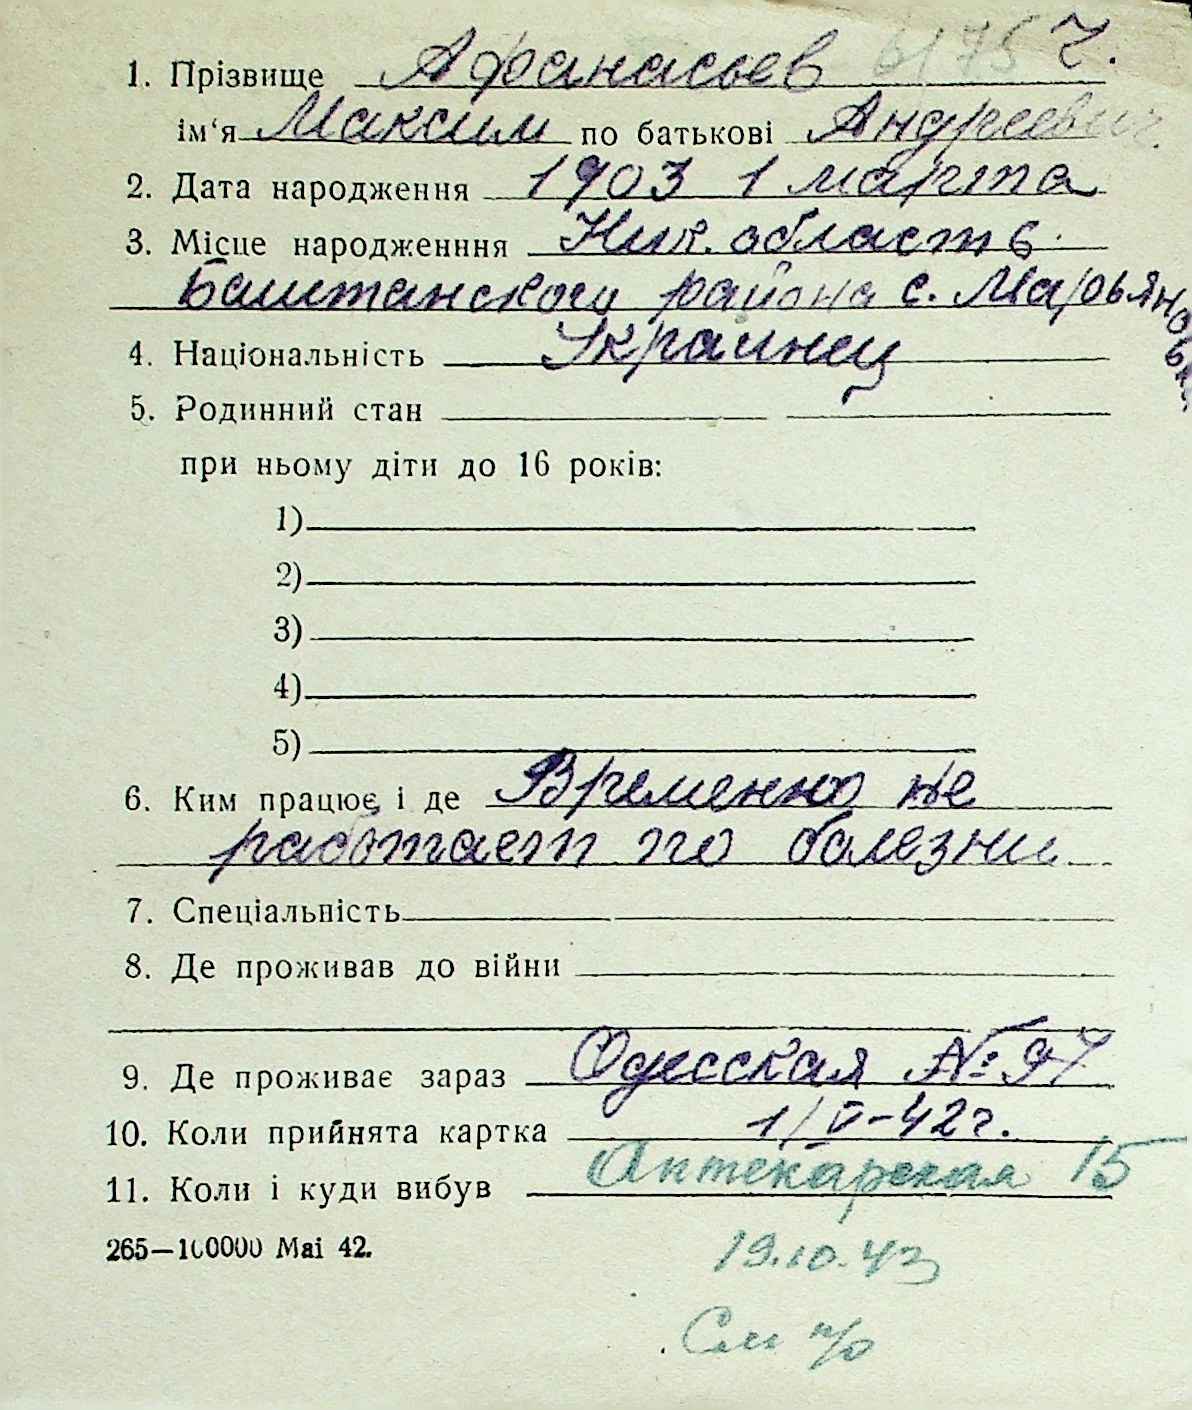 6175 Ч.
1. Прізвище Афанасьев
ім‘я Максим по батькові Андреевич.
2. Дата народження 1903 1 марта
3. Місце народженння Ник. область
Баштанского района с. Марьяновка
4. Національність Украинец
5. Родинний стан
при ньому діти до 16 років:
1)
2)
3)
4)
5)
6. Ким працює і де Временно не
работает по болезни
7. Спеціальність
8. Де проживав до війни
9. Де проживає зараз Одесская № 97
10. Коли прийнята картка 1/V-42г.
11. Коли і куди вибув Аптекарская 15
265—100000 Mai 42.
19.10.43
См н/о